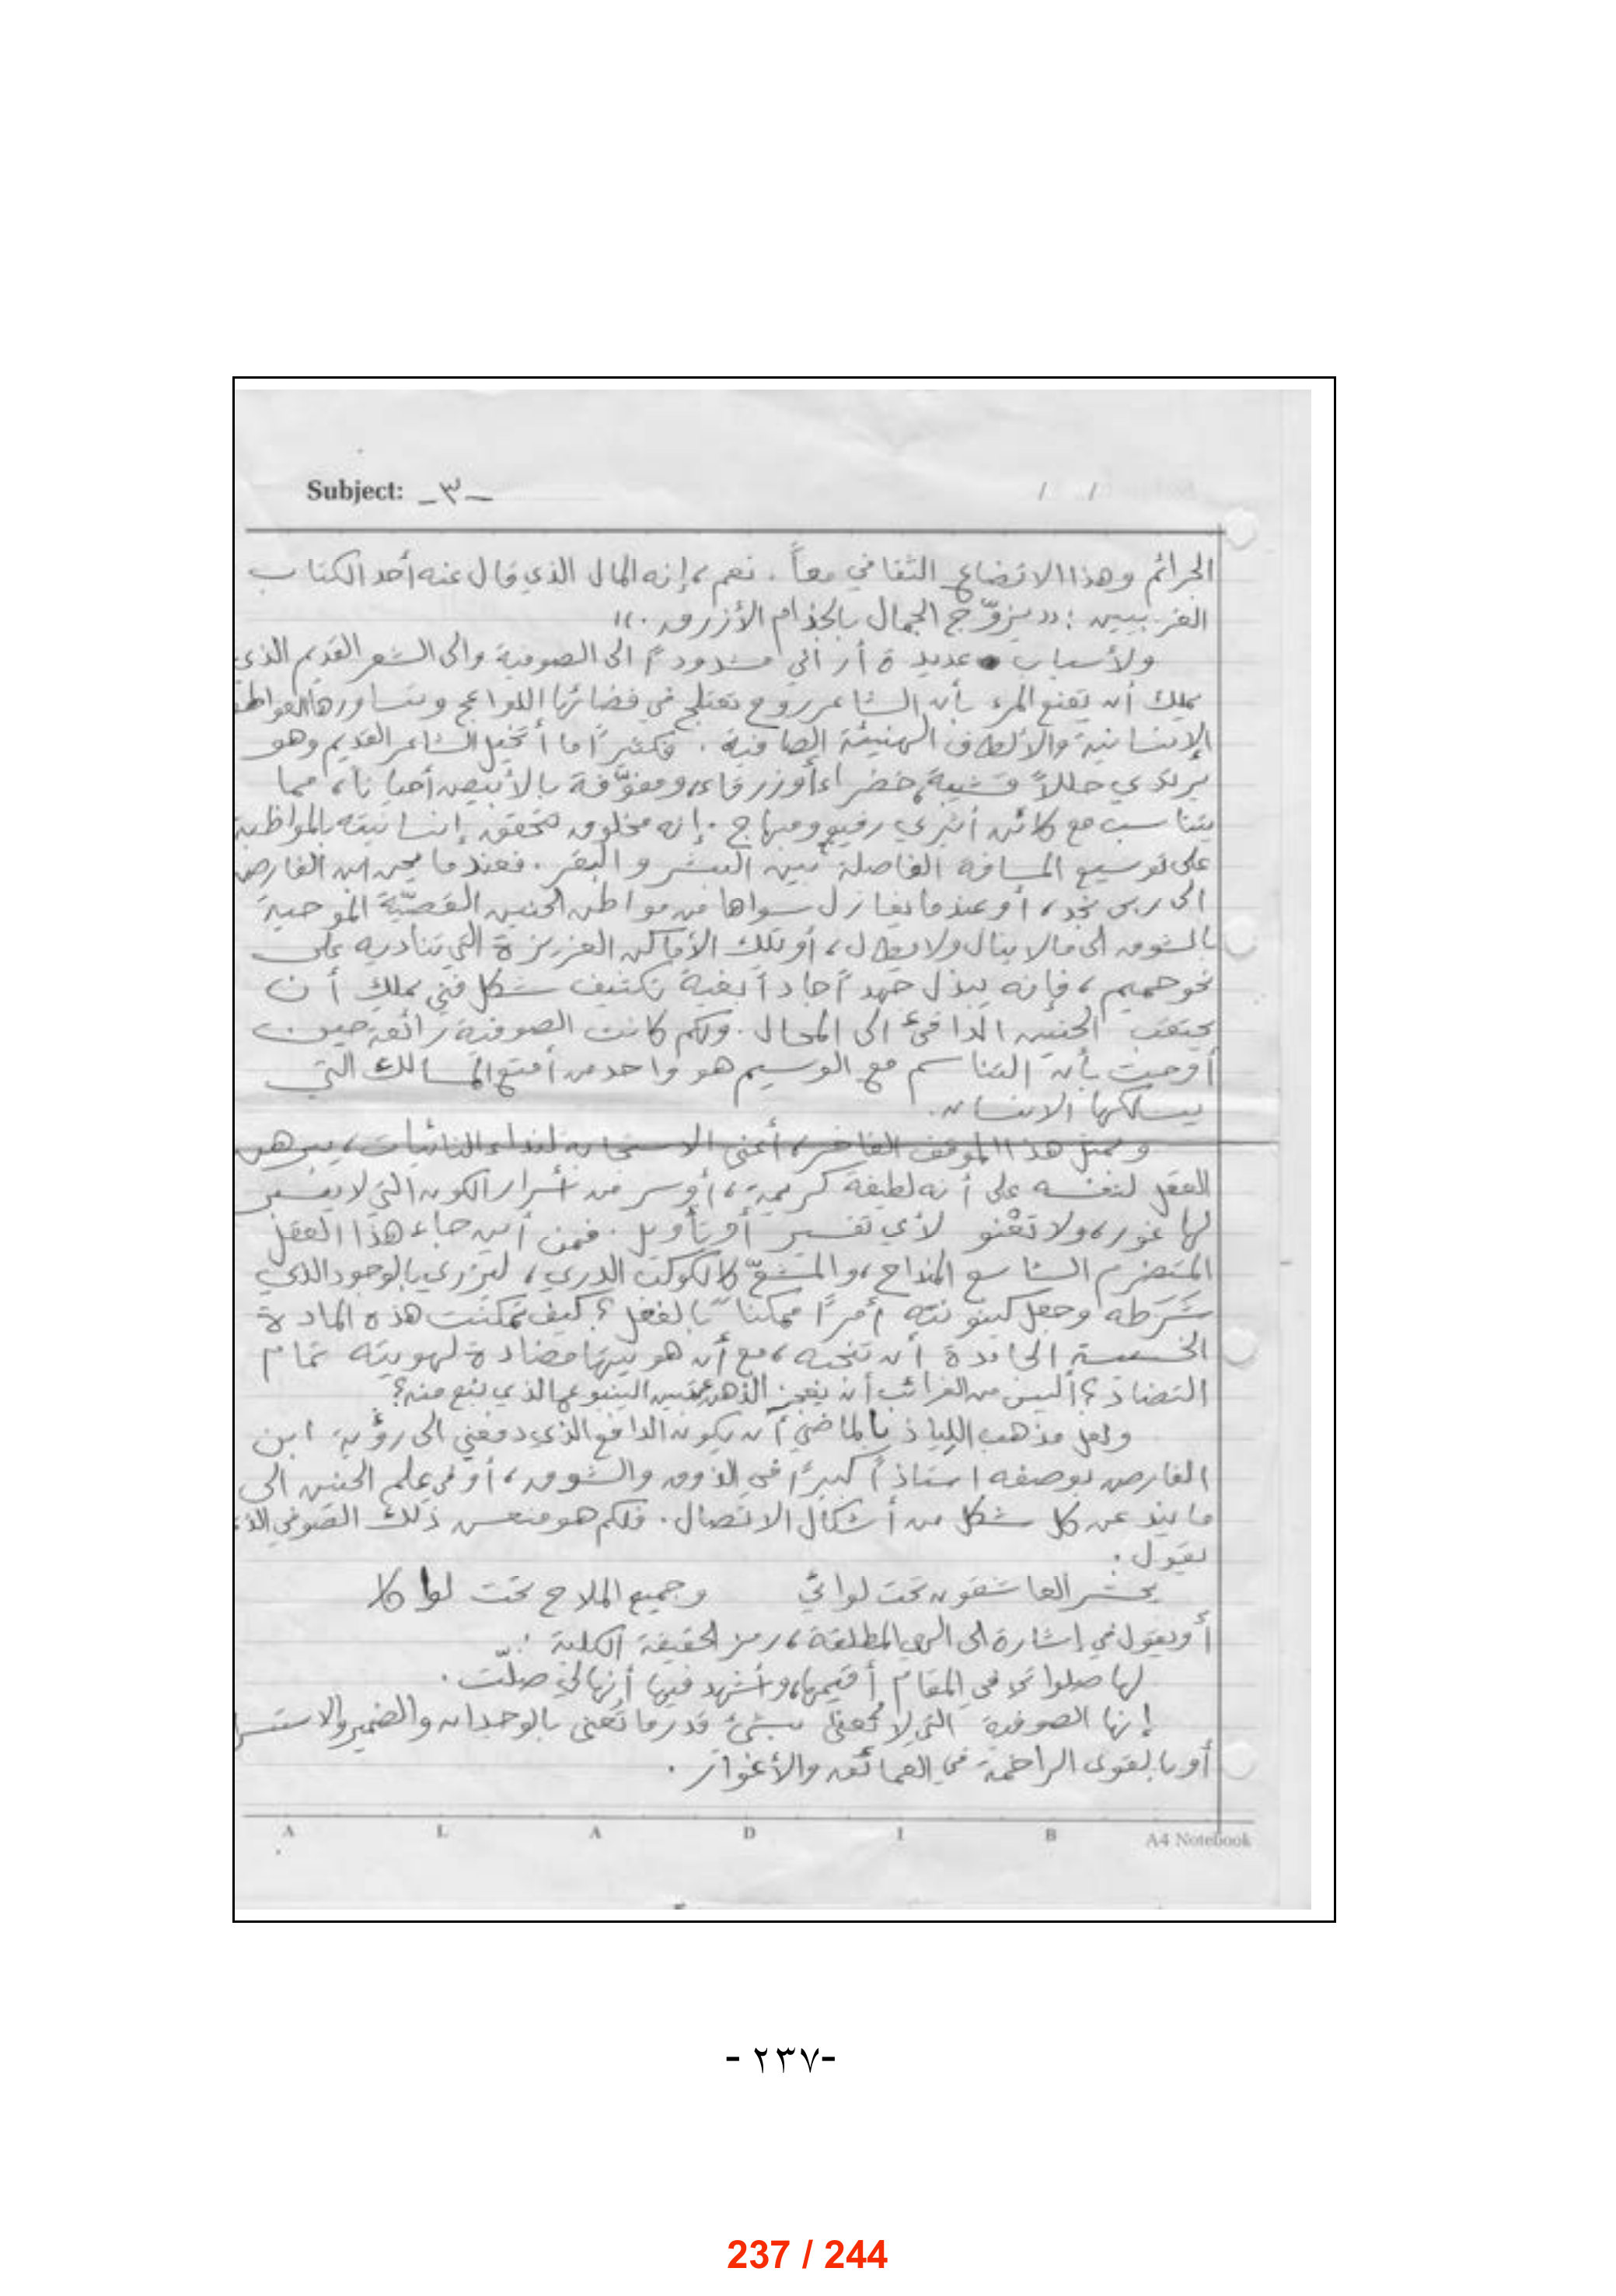 Subject: -٣-
/ /
الجرائم وهذا الاتضاع الثقافي معاً . نعم، إنه المال الذي قال عنه أحد الكتاب
الغربيين : «يزوّج الجمال بالجذام الأزرق .»
ولأسباب عديدة أراني مشدوداً الى الصوفية والى الشعر القديم الذي
يملك أن يقنع المرء بأن الشاعر روح تعتلج في فضائها اللواعج وتساورها العواطف
الإنسانية والألطاف الهنيئة الصافية . فكثيراً ما أتخيل الشاعر القديم وهو
يرتدي حللاً قشيبة، خضراء أو زرقاء، ومفوّفة بالأبيض أحياناً، مما
يتناسب مع كائن أثيري رفيع ومبهاج . إنه مخلوق تتحقق إنسانيته بالمواظبة
على توسيع المسافة الفاصلة بين البشر والبقر . فعندما يحن ابن الفارض
الى ربى نجد، أو عندما يغازل سواها من مواطن الحنين القصيّة الموحية
بالشوق الى مالا ينال ولا يطال، أو تلك الأماكن العزيزة التي تناديه على
نحو حميم، فإنه يبذل جهداً جاداً بغية تكثيف شكل فني يملك أن
يحتقب الحنين الدافئ الى المحال . ولكم كانت الصوفية رائعة حين
أوحت بأن التناسم مع الوسيم هو واحد من أمتع المسالك التي
يسلكها الانسان.
وبمثل هذا الموقف الفاخر، أعني الاستجابة لنداء النائيات، يبرهن
العقل لنفسه على أنه لطيفة كريمة، أو سر من أسرار الكون التي لا يسبر
لها غور، ولا تعْنو لأي تفسير أو تأويل . فمن أين جاء هذا العقل
المتضرم الشاسع المنداح، والمشعّ كالكوكب الدري، ليزري بالوجود الذي
شَرَطه وجعل كينونته أمراً ممكناً بالفعل؟ كيف تمكنت هذه المادة
الخسيسة الجامدة أن تنجبه، مع أن هويتها مضادة لهويته تمام
التضاد؟ أليس من الغرائب أن يعجز الذهن عن الينبوع الذي ينبع منه؟
ولعل مذهب اللياذ بالماضي أن يكون الدافع الذي دفعني الى رؤية ابن
الفارض بوصفه استاذاً كبيراً في الذوق والشوق، أو في علم الحنين الى
ما يند عن كل شكل من أشكال الاتصال . فلكم هو منعش ذلك الصوفي الذي
يقول :
يحشر العاشقون تحت لوائي وجميع الملاح تحت لواكا
أو يقول في إشارة الى الهي المطلقة، رمز الحقيقة الكلية :
لها صلواتي في المقام أقيمها، وأشهد فيها أنها لي صلّت .
إنها الصوفية التي لا تُعنى بشيء قدر ما تُعنى بالوجدان والضمير والاستسرار
أو بالقوى الراخمة في العمائق والأغوار .
A L A D I B A4 Notebook
- ٢٣٧-
237 / 244